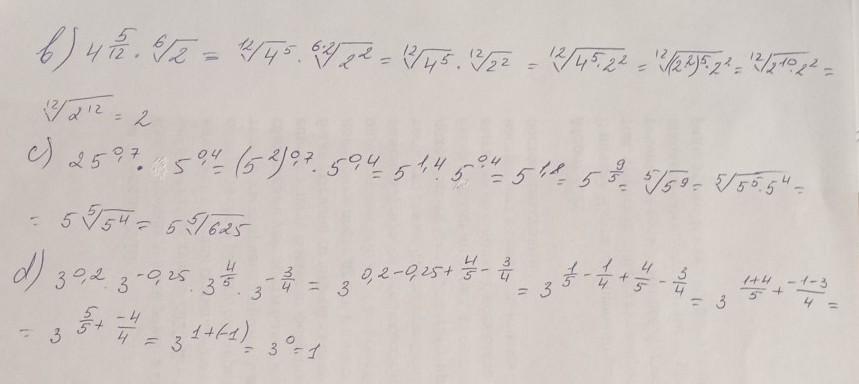 b) 4^(5/12) · ⁶√2 = ¹²√(4⁵) · ⁶·²√(2²) = ¹²√(4⁵) · ¹²√(2²) = ¹²√(4⁵·2²) = ¹²√((2²)⁵·2²) = ¹²√(2¹⁰·2²) =
¹²√(2¹²) = 2
c) 25^(0,7) · 5^(0,4) = (5²)^(0,7) · 5^(0,4) = 5^(1,4) · 5^(0,4) = 5^(1,8) = 5^(9/5) = ⁵√(5⁹) = ⁵√(5⁵·5⁴) =
= 5 ⁵√(5⁴) = 5 ⁵√625
d) 3^(0,2) · 3^(-0,25) · 3^(4/5) · 3^(-3/4) = 3^(0,2-0,25+4/5-3/4) = 3^(1/5-1/4+4/5-3/4) = 3^((1+4)/5+(-1-3)/4) =
= 3^(5/5+(-4)/4) = 3^(1+(-1)) = 3⁰ = 1